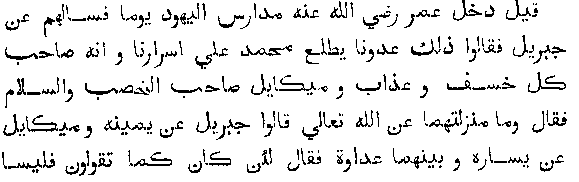 قيل دخل عمر رضي الله عنه مدارس اليهود يوما فسالهم عن
جبريل فقالوا ذلك عدونا يطلع محمد علي اسرارنا و انه صاحب
كل خسف و عذاب و ميكايل صاحب الخصب والسلام
فقال وما منزلتهما عن الله تعالي قالوا جبريل عن يمينه و ميكايل
عن يساره و بينهما عداوة فقال لئن كان كما تقولون فليسا